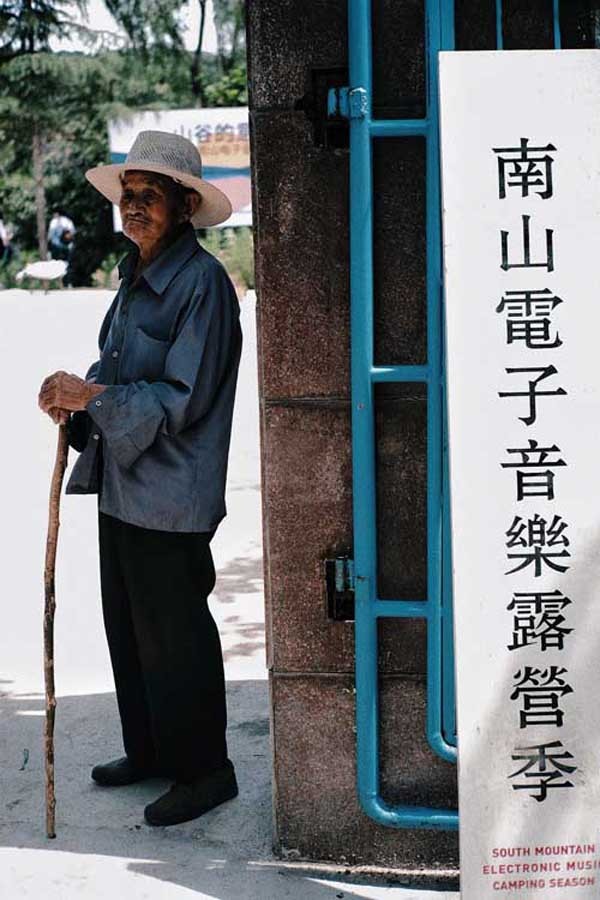 山谷的
南山電子音樂露營季
SOUTH MOUNTAIN
ELECTRONIC MUSI
CAMPING SEASON